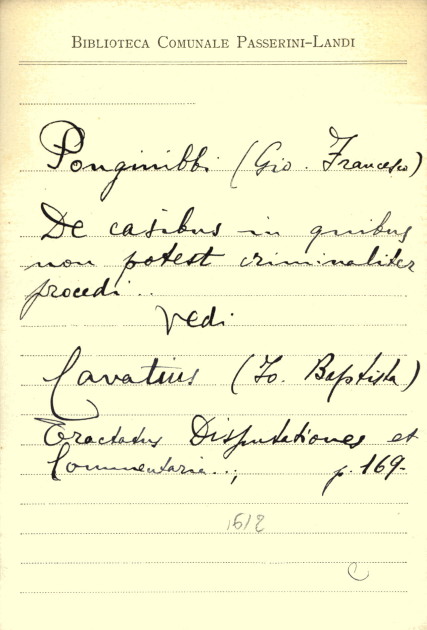 BIBLIOTECA COMUNALE PASSERINI-LANDI
Ponginibbi (Gio. Francesco)
De casibus in quibus
non potest criminaliter
procedi..
Vedi
Cavatius (Io. Baptista)
Tractatus Disputationes et
Commentaria..; p. 169-
1612
C